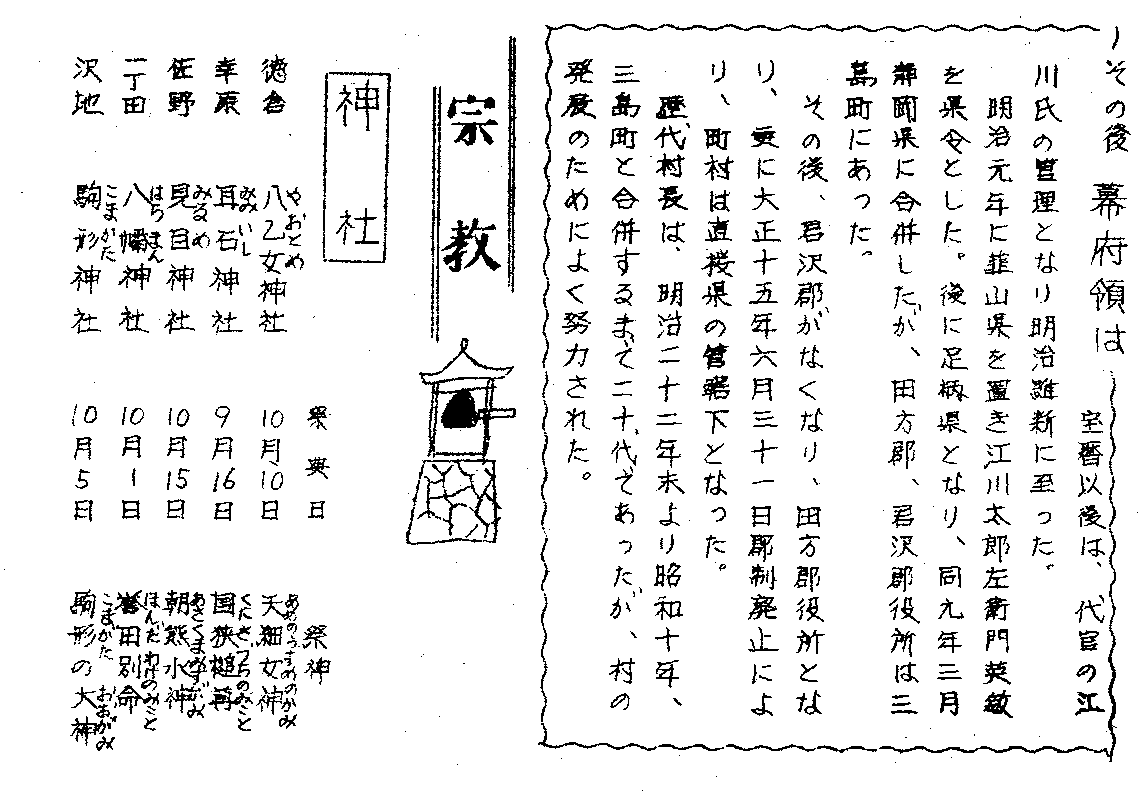 その後 幕府領は 宝暦以後は、代官の江
川氏の管理となり明治維新に至った。
明治元年に韮山県を置き江川太郎左衛門英敏
を県令とした。後に足柄県となり、同九年三月
静岡県に合併したが、田方郡、君沢郡役所は三
島町にあった。
その後、君沢郡がなくなり、田方郡役所とな
り、更に大正十五年六月三十一日郡制廃止によ
り、町村は直接県の管轄下となった。
歴代村長は、明治二十二年末より昭和十年、
三島町と合併するまで二十代であったが、村の
発展のためによく努力された。
宗教
神社
祭典日 祭神
徳倉 八乙女神社 やおとめ 10月10日 天細女神 あめのうすめのかみ
幸原 耳石神社 みみいし 9月16日 国狭槌尊 くにさづちのみこと
佐野 見目神社 みるめ 10月15日 朝熊水神 あさくまみずがみ
一丁田 八幡神社 はちまん 10月1日 誉田別命 ほんだわけのみこと
沢地 駒形神社 こまがた 10月5日 駒形の大神 こまがた おおがみ